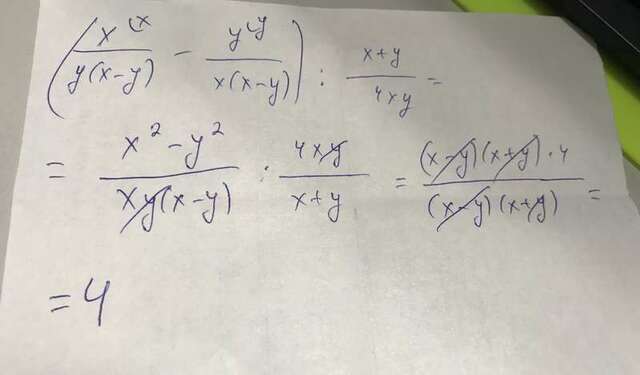 (x^{(x}/y(x-y) - y^{(y}/x(x-y)) : x+y/4xy =
= x²-y²/xy(x-y) : 4xy/x+y = (x-y)(x+y)·4/(x-y)(x+y) =
= 4